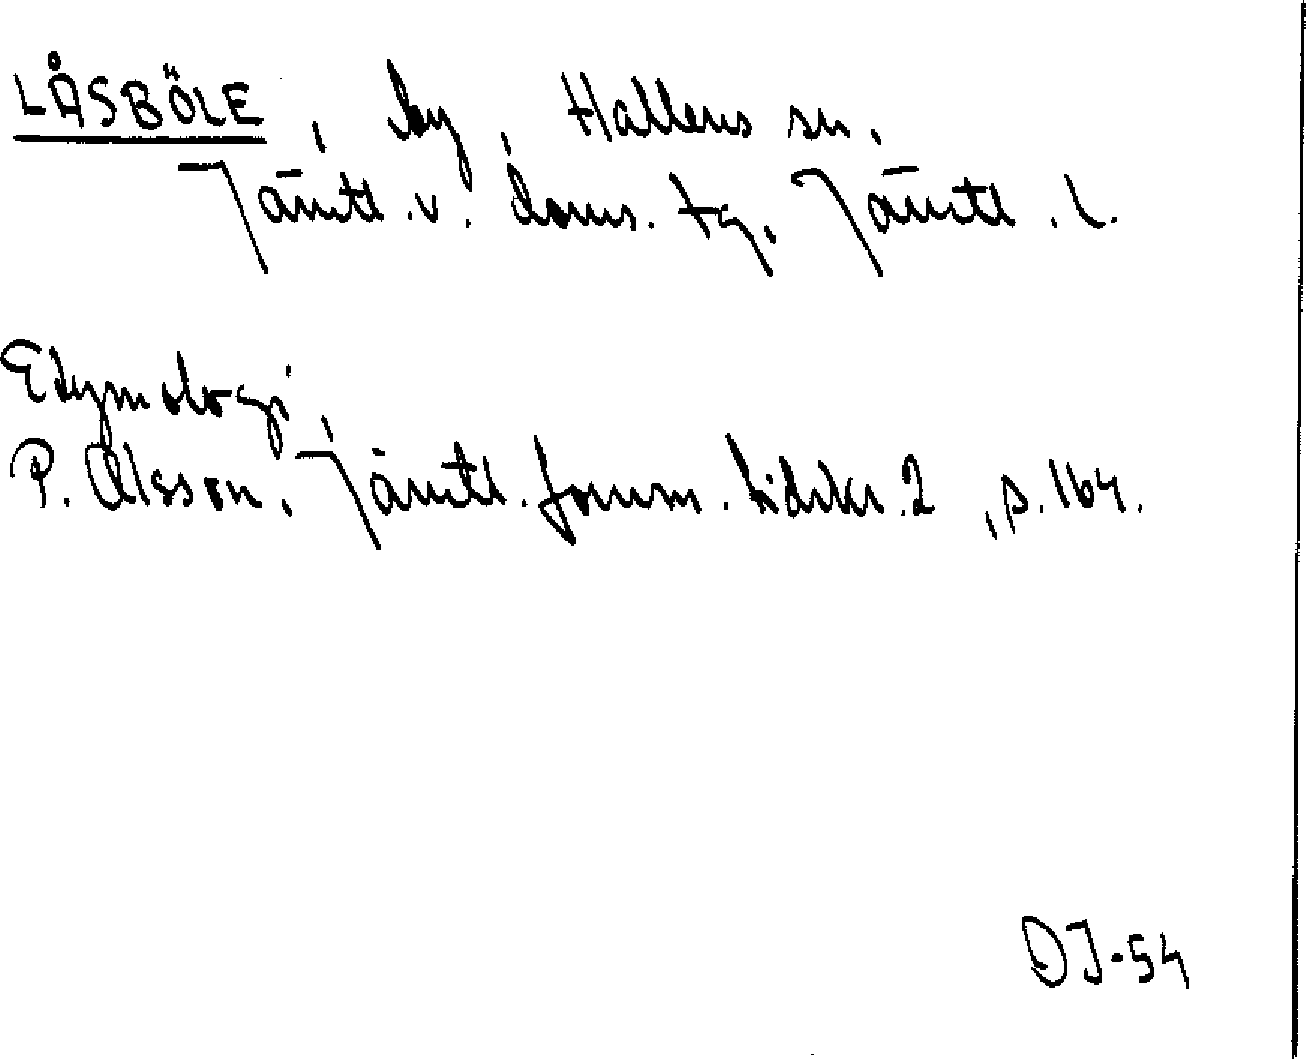 LÅSBÖLE, by, Hallens sn,
Jämtl. v. doms. tg, Jämtl. l.
Etymologi,
P. Olsson, Jämtl. fornm. tidskr. 2, s. 164.
DJ-54